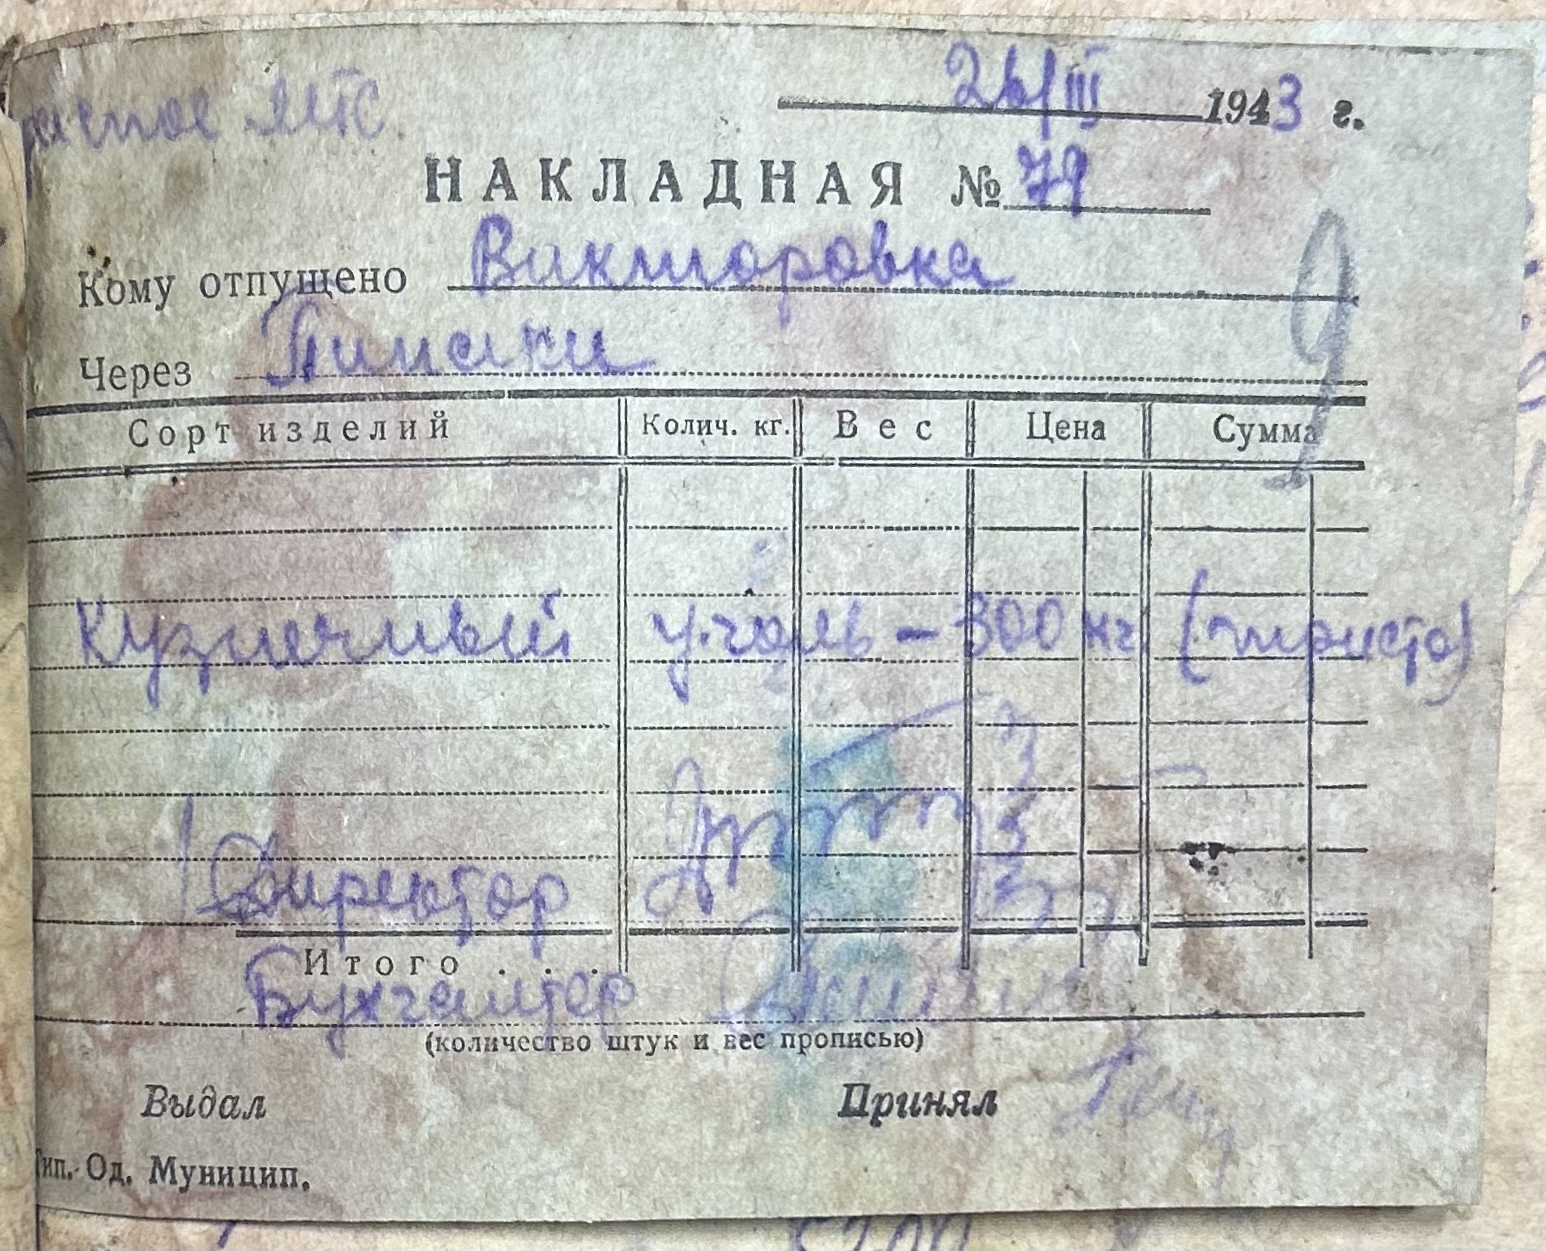 МТС.
26/III 1943 г.
НАКЛАДНАЯ № 79
Кому отпущено Викторовка
Через
Сорт изделий Колич. кг. Вес Цена Сумма
Кузнечный уголь - 300 кг (триста)
Директор
Итого . . .
Бухгалтер
(количество штук и вес прописью)
Выдал Принял
Тип. Од. Муницип.